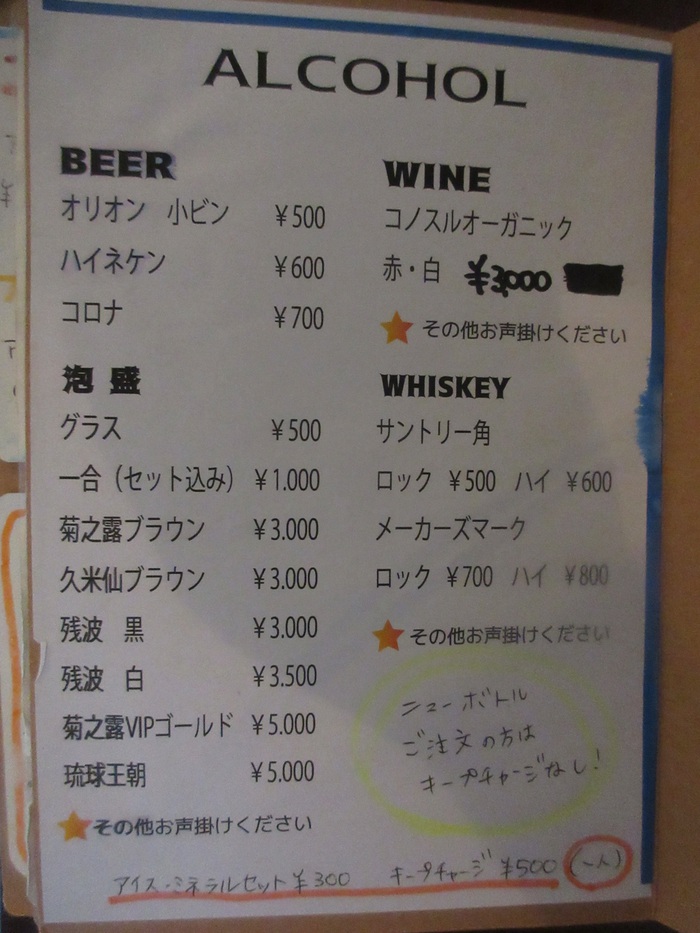 ALCOHOL
BEER
オリオン 小ビン ¥500
ハイネケン ¥600
コロナ ¥700
泡 盛
グラス ¥500
一合（セット込み） ¥1.000
菊之露ブラウン ¥3.000
久米仙ブラウン ¥3.000
残波 黒 ¥3.000
残波 白 ¥3.500
菊之露VIPゴールド ¥5.000
琉球王朝 ¥5.000
その他お声掛けください
WINE
コノスルオーガニック
赤・白 ¥3,000
その他お声掛けください
WHISKEY
サントリー角
ロック ¥500 ハイ ¥600
メーカーズマーク
ロック ¥700 ハイ ¥800
その他お声掛けください
ニューボトル
ご注文の方は
キープチャージなし!
アイス・ミネラルセット ¥300 キープチャージ ¥500 (一人)